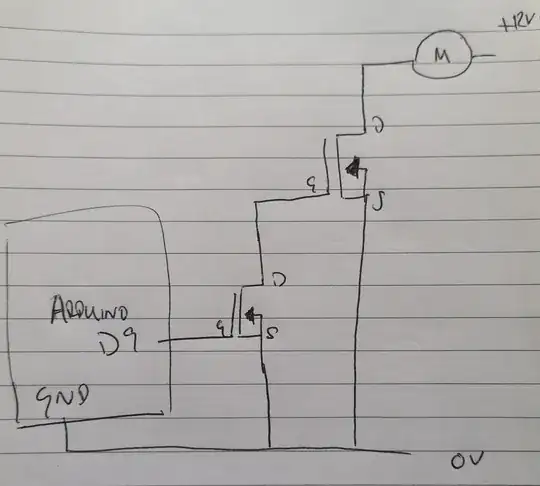 +12V
M
D
G
S
D
ARDUINO
D9
G
S
GND
0V